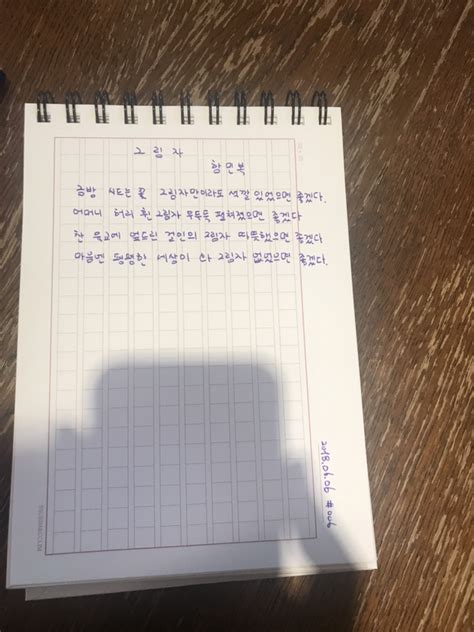 그림자
함민복
금방 시드는 꽃 그림자만이라도 색깔 있었으면 좋겠다.
어머니 허리 휜 그림자 우두둑 펴졌으면 좋겠다
찬 육교에 엎드린 걸인의 그림자 따뜻했으면 좋겠다
마음엔 평평한 세상이 와 그림자 없었으면 좋겠다.
2018.06.06 #006